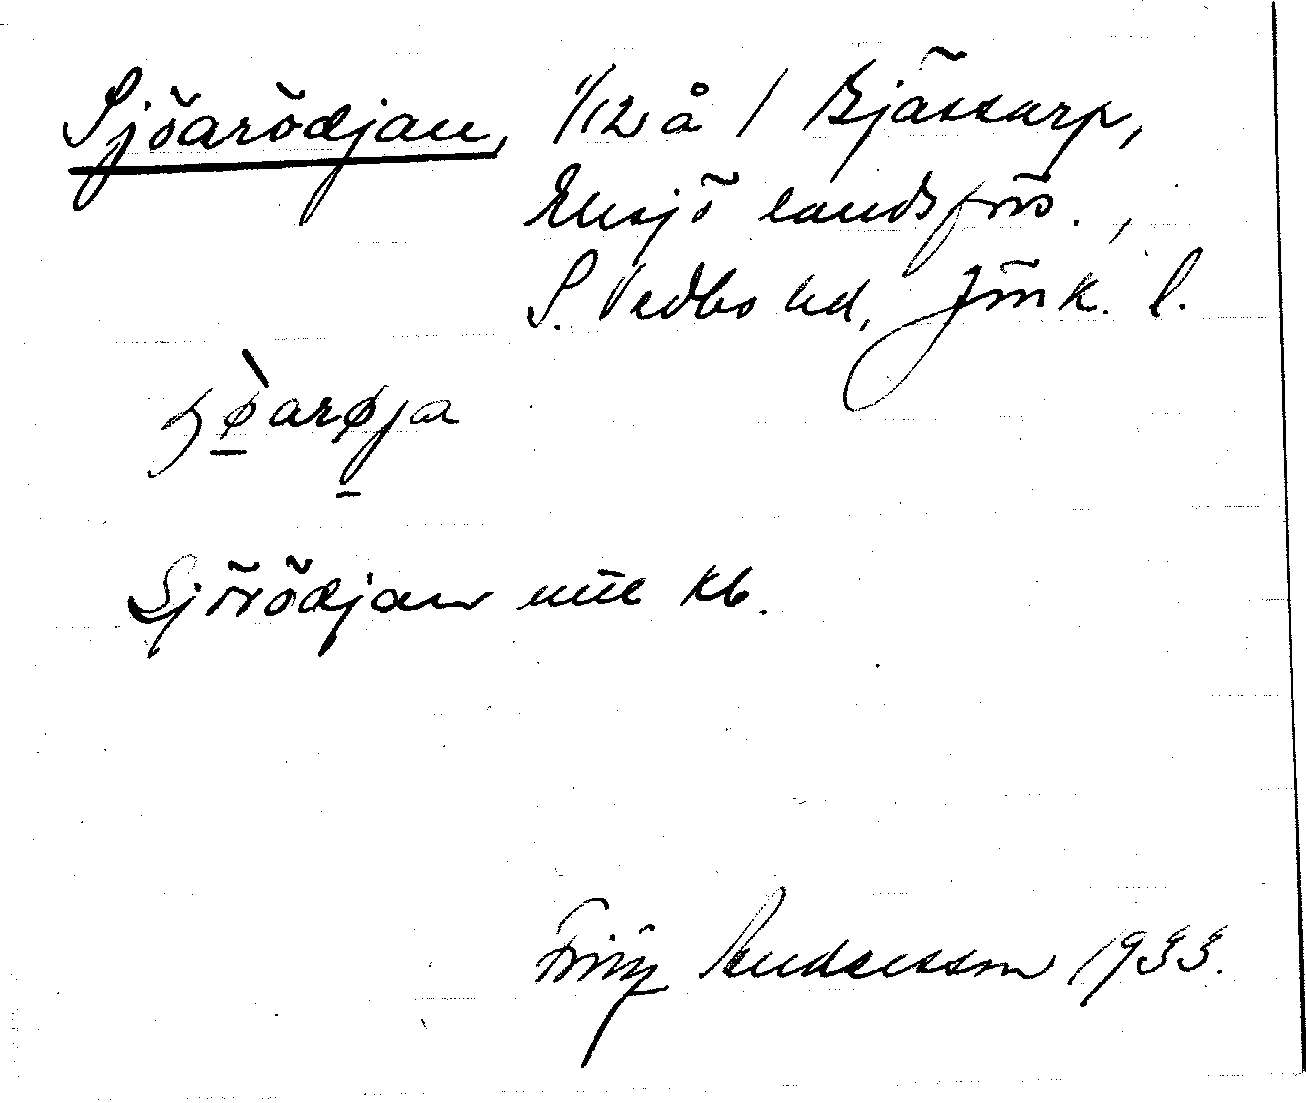 Sjöarödjan, 1/12 å / Bjässarp,
Eksjö landsförs.,
S. Vedbo hd, Jönk. l.
ʒø̀arøja
Sjörödjan kb.
Fritz Andersson 1933.